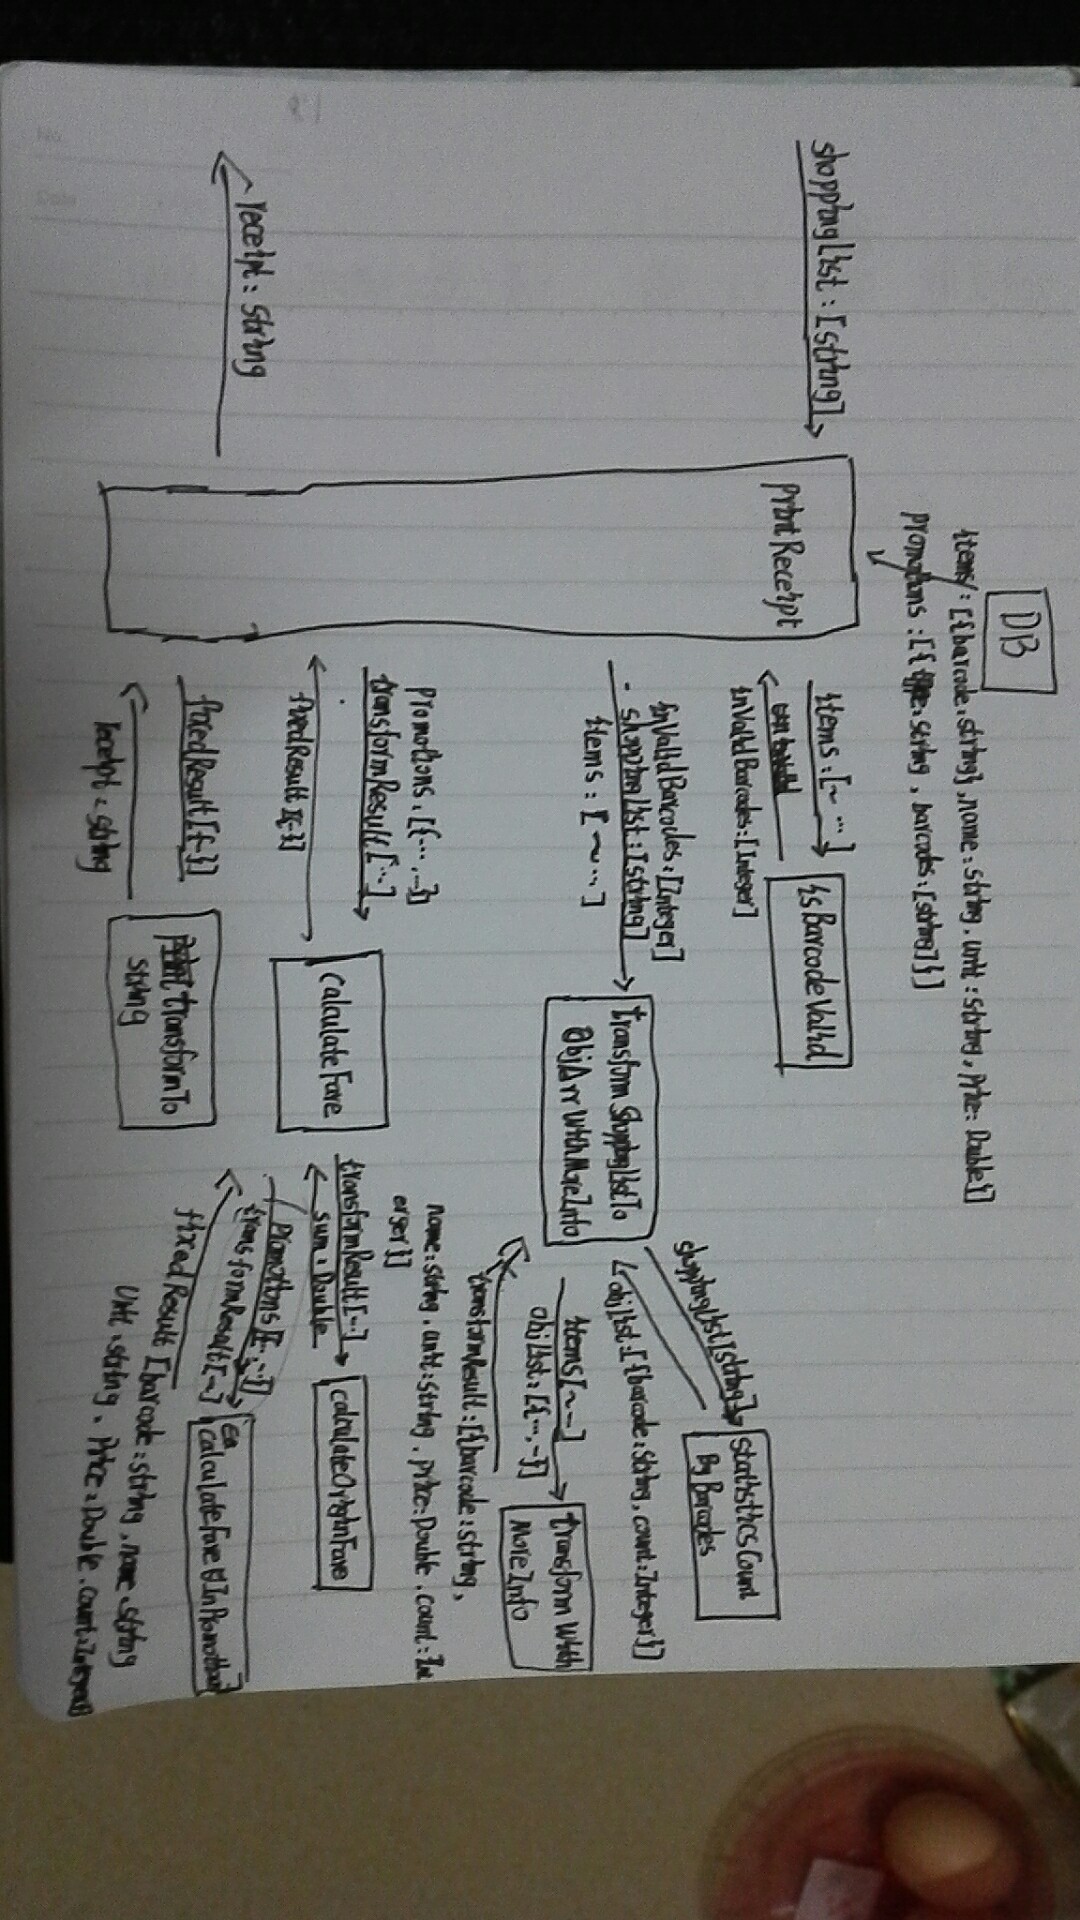 DB
items: [{barcode:string}, name:string, unit:string, price: Double}]
promotions: [{type:string, barcodes:[string]}]
shoppingList: [string]
printReceipt
items: [~ ...]
inValidBarcodes:[Integer]
isBarcodeValid
inValidBarcodes:[Integer]
shoppingList:[string]
items: [~ ...]
transformShoppingListTo
ObjArrWithMoreInfo
shoppingList[string]
statisticsCount
By Barcodes
objList:[{barcode:string, count:Integer}]
items[~ ~]
objList:[{..., -}]
transform With
More Info
transformResult:[{barcode:string,
name:string, unit:string, price:Double, count:Int
eger}]
promotions, [{..., ...}]
transformResult[...]
fixedResult [{-}]
calculateFare
transformResult[...]
sum: Double
calculateOriginFare
Promotions [{...}]
transformResult[~]
calculateFare InPromotion
fixedResult [barcode:string, name:string
Unit:string, Price:Double, count:Integer
receipt: string
fixedResult[{-}]
receipt: string
transformTo
string